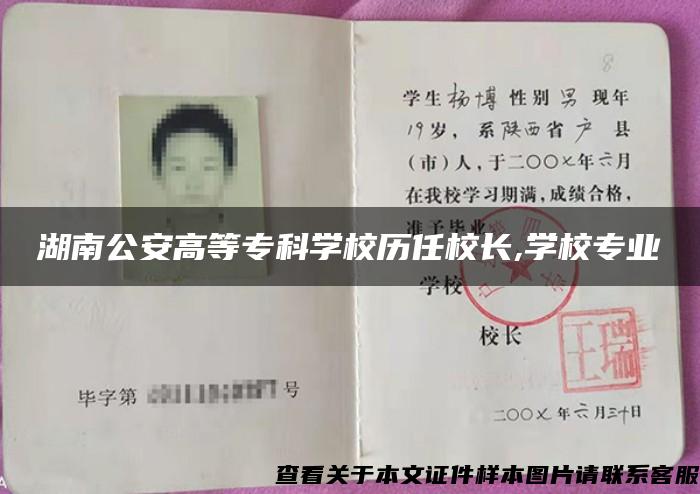 8
学生杨博性别男现年
19岁，系陕西省户县
（市）人，于二〇〇七年六月
在我校学习期满，成绩合格，
准予毕业
湖南公安高等专科学校历任校长,学校专业
学校
校长
毕字第 号
二〇〇七年六月三十日
查看关于本文证件样本图片请联系客服